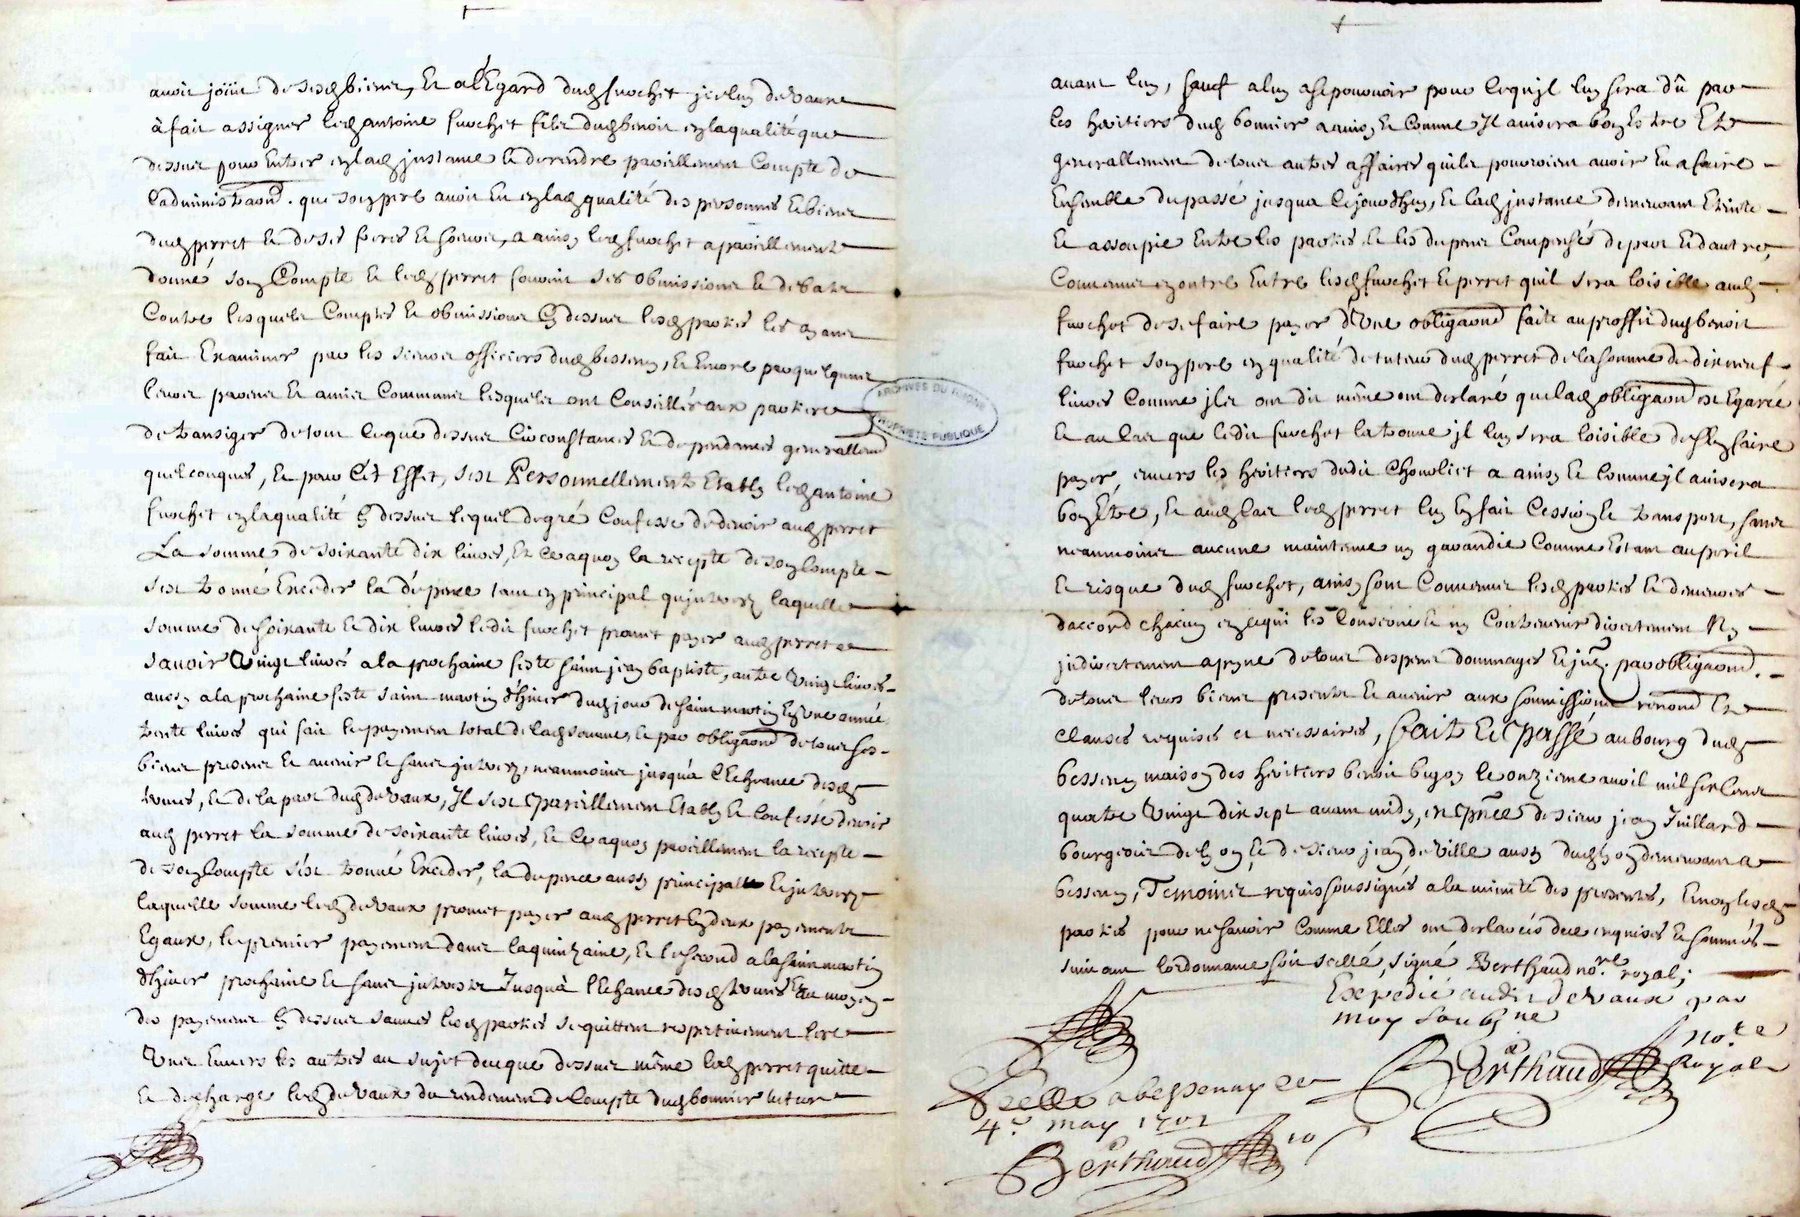 avoir joüir de sesd biens, Et a l'Egard dud fuochet iceluy devaux
à fait assigner led antoine fuochet filz dud benoit en la qualité que
dessus pour Entrer en lad instance et de rendre pareillement Compte de
l'administraon que son pere avoit Eu en lad qualité des personnes et biens
dud perret et de ses freres et soeurs, a ainsy led fuochet a pareillement
donné son Compte et led perret fournit ses obmissions et debats
Contre lesquels Comptes et obmissions cy dessus lesd parties les ayans
fait Examiner par les sieurs officiers dud bessenay, et Encore par quelques uns
leurs parens et amis Communs lesquels ont Conseillés aux parties
de transiger de tout ce que dessus Circonstances et dependances generallement
quelconques, Et pour Cet Effet, s'est Personnellement Etably led antoine
fuochet en la qualité cy dessus lequel de gré Confesse de devoir aud perret
La somme de soixante dix livres, Et ce a quoy la recepte de son Compte
s'est trouvé Exceder la depence tant en principal qu'interez laquelle
somme de soixante et dix livres ledit fuochet promet payer aud perret
savoir Vingt livres a la prochaine feste saint jean baptiste, autre Vingt livres
aussy a la prochaine feste saint martin d'hiver dud jour de saint martin En Une année
trente livres qui fait le payement total de lad somme, et par obligaon de tous ses
biens presens et avenir et sans interez, neanmoins jusqu'a l'Echeance desd
termes, Et de la part dud devaux, Il s'est Pareillement Etably et Confessé devoir
aud perret la somme de soixante livres, Et ce a quoy pareillement la recepte
de son Compte s'est trouvé Exceder, la depence aussy principal et interez
laquelle somme led devaux promet payer aud perret En deux payements
Egaux, le premier payement dans la quinzaine, Et le second a la saint martin
d'hiver prochaine et sans interests Jusqu'à l'Echeance desd termes Et au moyen
des payemens cy dessus lesd parties se quittent respectivement les
Unes Envers les autres au sujet de ce que dessus même led perret quitte
et decharge led devaux du rendement de Compte dud bonnier tuteur
avant luy, sauf a luy a se pourvoir pour ce qu'il luy sera dû par
les heritiers dud bonnier a ainsy et Comme Il avisera bon Estre Et
generallement de tous autres affaires qu'ils pourroient avoir Eu a faire
Ensemble du passé jusqu'a ce jourd'huy, et lad instance demeurant Eteinte
et assoupie Entre les parties et les depens Compensés de part et d'autre,
Convenu en outre Entre lesd fuochet et perret qu'il sera loisible aud
fuochet de se faire payer d'Une obligaon faite au proffit dud benoit
fuochet son pere en qualité de tuteur dud perret de la somme de dix neuf
livres Comme ils ont dit même ont declaré que lad obligaon est Egarée
et au Cas que ledit fuochet la trouve il luy sera loisible de s'En faire
payer, envers les heritiers dudit Chovoliet a ainsy et Comme il avisera
bon Etre, Et aud Cas led perret luy En fait Cession et transport, sans
neanmoins aucune maintenue ny garandie Comme Estant au peril
et risque dud fuochet, ainsy sont Convenus lesd parties et demeurés
d'accord chacun en ce qui les Concerne et ny Contrevenir directement Ny
indirectement a peyne de tous despens dommages et int. par obligaon
de tous leurs biens presents et avenir aux soumissions renonõn Et
clauses requises et necessaires, fait Et Passé au bourg dud
bessenay maison des heritiers benoit bugon le onzieme avril mil six Cens
quatre Vingt dix sept avant midy, en pñce de sieur jean Juillard
bourgeois de lyon, et de sieur jean de Ville aussy dud lyon demeurant a
bessenay, Temoins requis soussignés a la minutte des presentes, Et non lesd
parties pour ne savoir Comme Elles ont declarés de ce enquises et sommés
suivant l'ordonnance soit scellé, signé Berthaud no.re royal;
Expedié audit devaux par
moy soubsne
Berthaud
no.re
Royal
Scellé a bessenay le
4.e may 1701
Berthaud
ARCHIVES DU RHONE
PROPRIETE PUBLIQUE